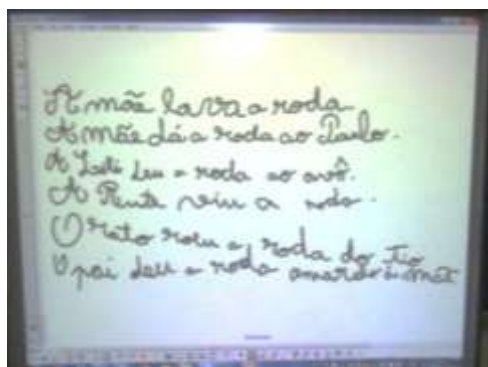 A mãe lava a roda
A mãe dá a roda ao Paulo.
A Lili deu a roda ao avô.
A Renata viu a roda.
O rato roeu a roda do tio
O pai deu a roda à mãe